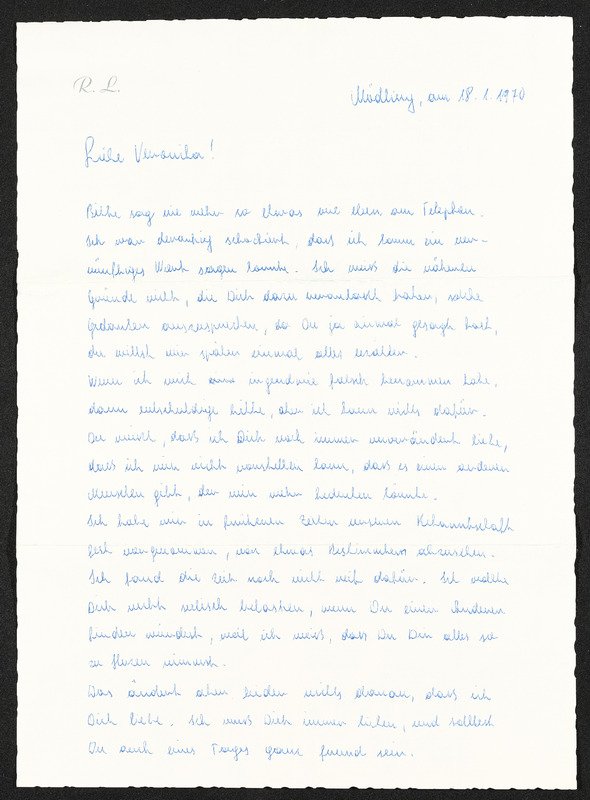 R. L.
Mödling, am 18.1.1970
Liebe Veronika!
Bitte sag nie mehr so etwas wie eben am Telephon.
Ich war derartig schockiert, dass ich kaum ein ver-
nünftiges Wort sagen konnte. Ich weiss die näheren
Gründe nicht, die Dich dazu veranlasst haben, solche
Gedanken auszusprechen, da Du ja einmal gesagt hast,
du willst mir später einmal alles erzählen.
Wenn ich mich irgendwie falsch benommen habe,
dann entschuldige bitte, aber ich kann nichts dafür.
Du weisst, dass ich Dich noch immer unverändert liebe,
dass ich mir nicht vorstellen kann, dass es einen anderen
Menschen gibt, der mir mehr bedeuten könnte.
Ich habe mir in früheren Zeiten unserer Bekanntschaft
fest vorgenommen, von etwas Bestimmtem abzusehen.
Ich fand die Zeit noch nicht reif dafür. Ich wollte
Dich nicht seelisch belasten, wenn Du einen Anderen
finden würdest, weil ich weiss, dass Du Dir alles so
zu Herzen nimmst.
Das ändert aber leider nichts daran, dass ich
Dich liebe. Ich muss Dich immer lieben, und solltest
Du auch eines Tages ganz fremd sein.